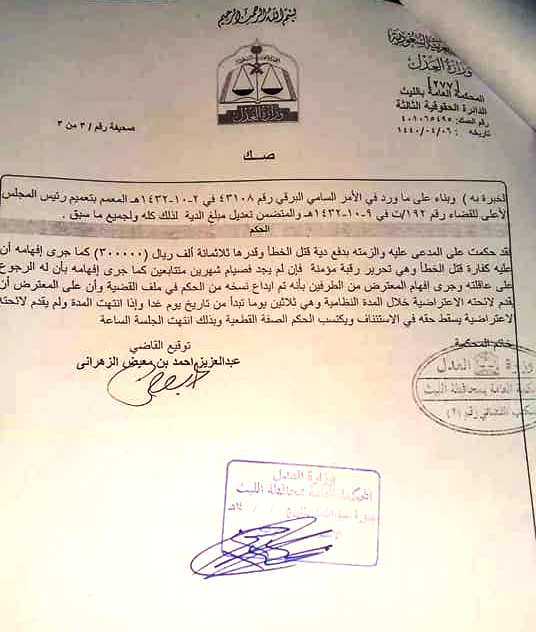 بسم الله الرحمن الرحيم
وزارة العدل
[٢٧٧]
المحكمة العامة بالليث
الدائرة الحقوقية الثالثة
رقم الصك: ٤٠١٠٦٥٤٩٥
تاريخه : ١٤٤٠/٠٤/٠٦
وزارة العدل
صحيفة رقم / ٣ من ٣
صك
لخبرة به ) وبناء على ما ورد في الأمر السامي البرقي رقم ٤٣١٠٨ في ٢-١٠-١٤٣٢هـ المعمم بتعميم رئيس المجلس
لأعلى للقضاء رقم ١٩٢/ت في ٩-١٠-١٤٣٢هـ والمتضمن تعديل مبلغ الدية لذلك كله ولجميع ما سبق .
الحكم
قد حكمت على المدعى عليه والزمته بدفع دية قتل الخطأ وقدرها ثلاثمائة ألف ريال (٣٠٠٠٠٠) كما جرى إفهامه أن
عليه كفارة قتل الخطأ وهي تحرير رقبة مؤمنة فإن لم يجد فصيام شهرين متتابعين كما جرى إفهامه بأن له الرجوع
على عاقلته وجرى إفهام المعترض من الطرفين بأنه تم ايداع نسخه من الحكم في ملف القضية وأن على المعترض أن
يقدم لائحته الاعتراضية خلال المدة النظامية وهي ثلاثين يوما تبدأ من تاريخ يوم غدا وإذا انتهت المدة ولم يقدم لائحته
لاعتراضية يسقط حقه في الاستئناف ويكتسب الحكم الصفة القطعية وبذلك انتهت الجلسة الساعة
توقيع القاضي
خاتم المحكمة
عبدالعزيز احمد بن معيض الزهراني
وزارة العدل
المحكمة العامة بمحافظة الليث
المكتب القضائي رقم (٣)
وزارة العدل
المحكمة العامة بمحافظة الليث